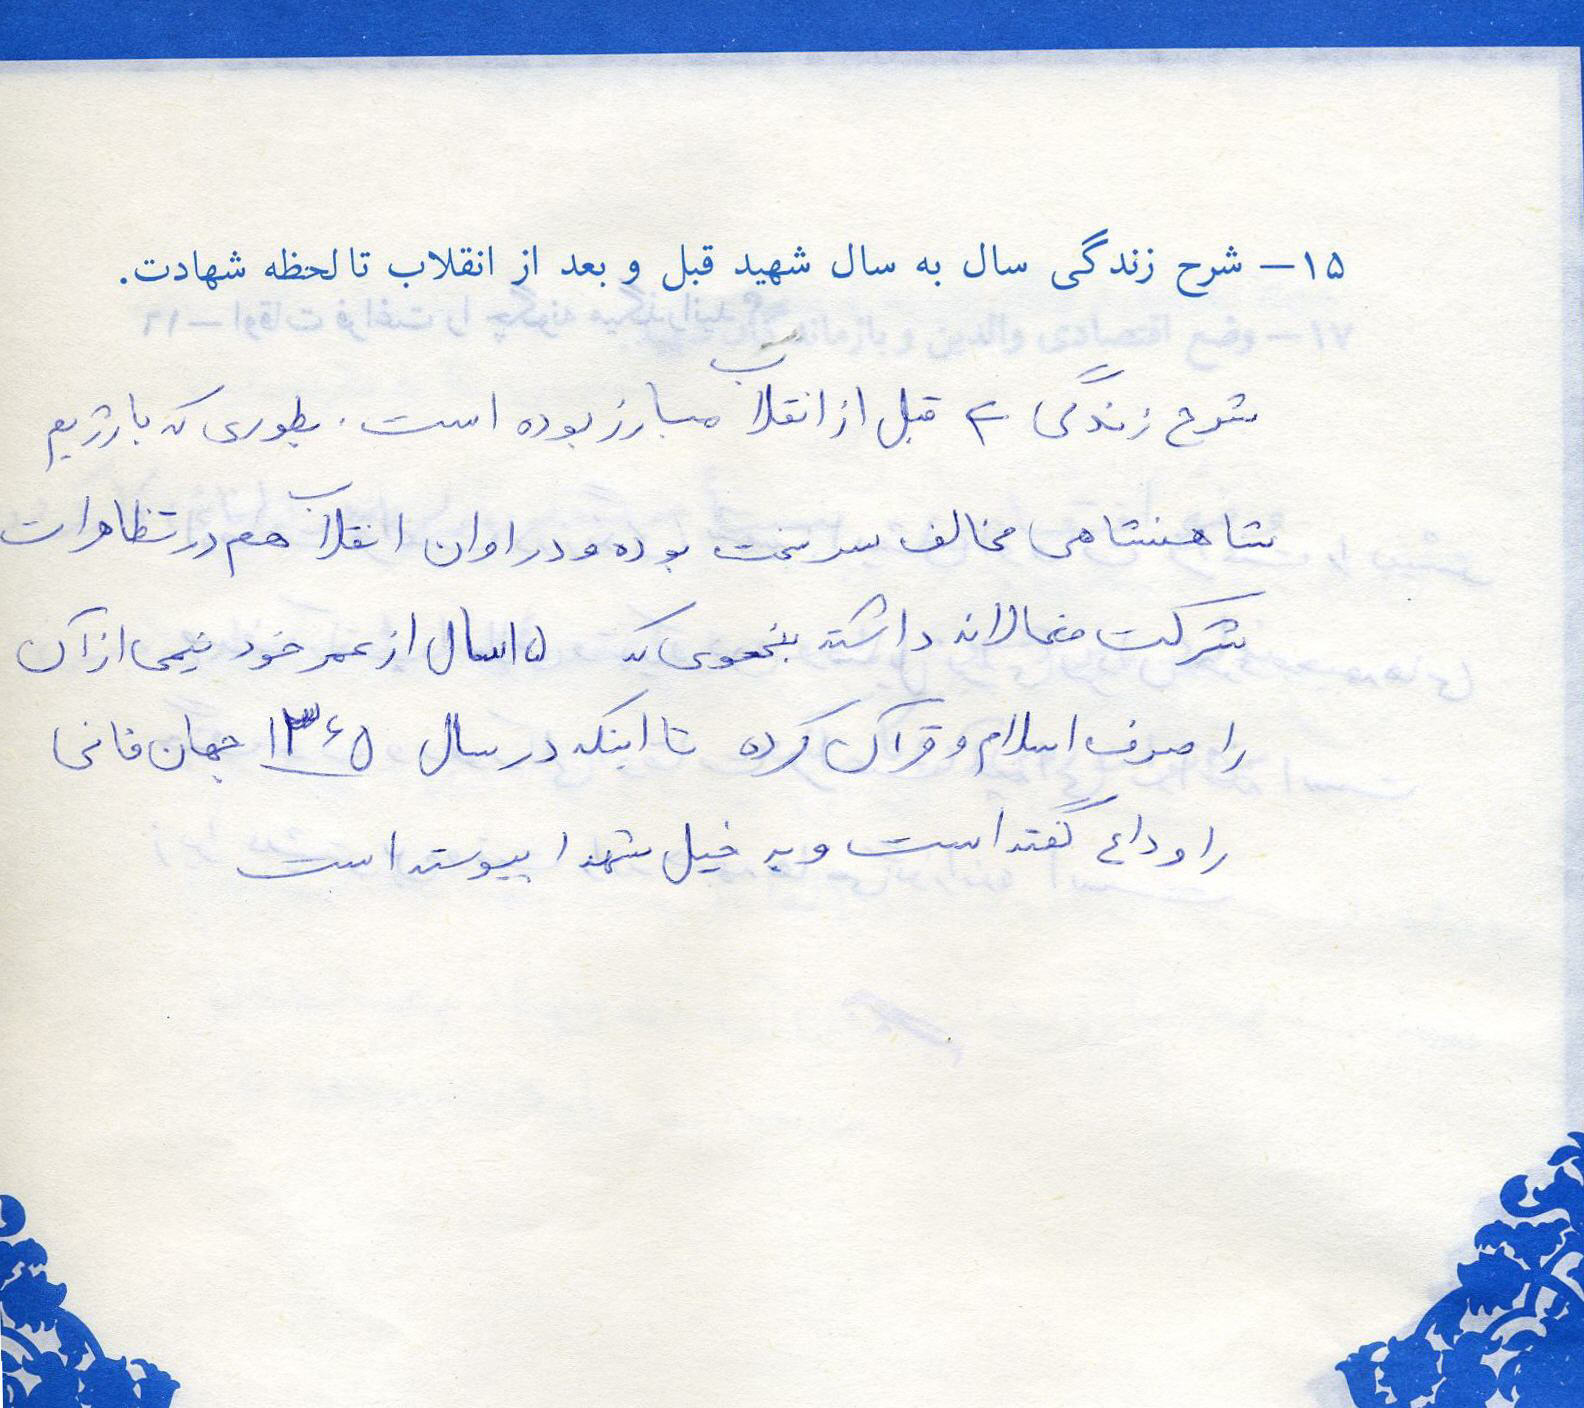 ۱۵- شرح زندگی سال به سال شهید قبل و بعد از انقلاب تا لحظه شهادت.
شرح زندگی قبل از انقلاب مبارز بوده است. بطوری که با رژیم
شاهنشاهی مخالف سرسخت بوده و در اوان انقلاب هم در تظاهرات
شرکت فعالانه داشته بنحوی که ۱۵سال از عمر خود نیمی از آن
را صرف اسلام و قرآن کرده تا اینکه در سال ۱۳۶۵ جهان فانی
را وداع گفته است و به خیل شهدا پیوسته است